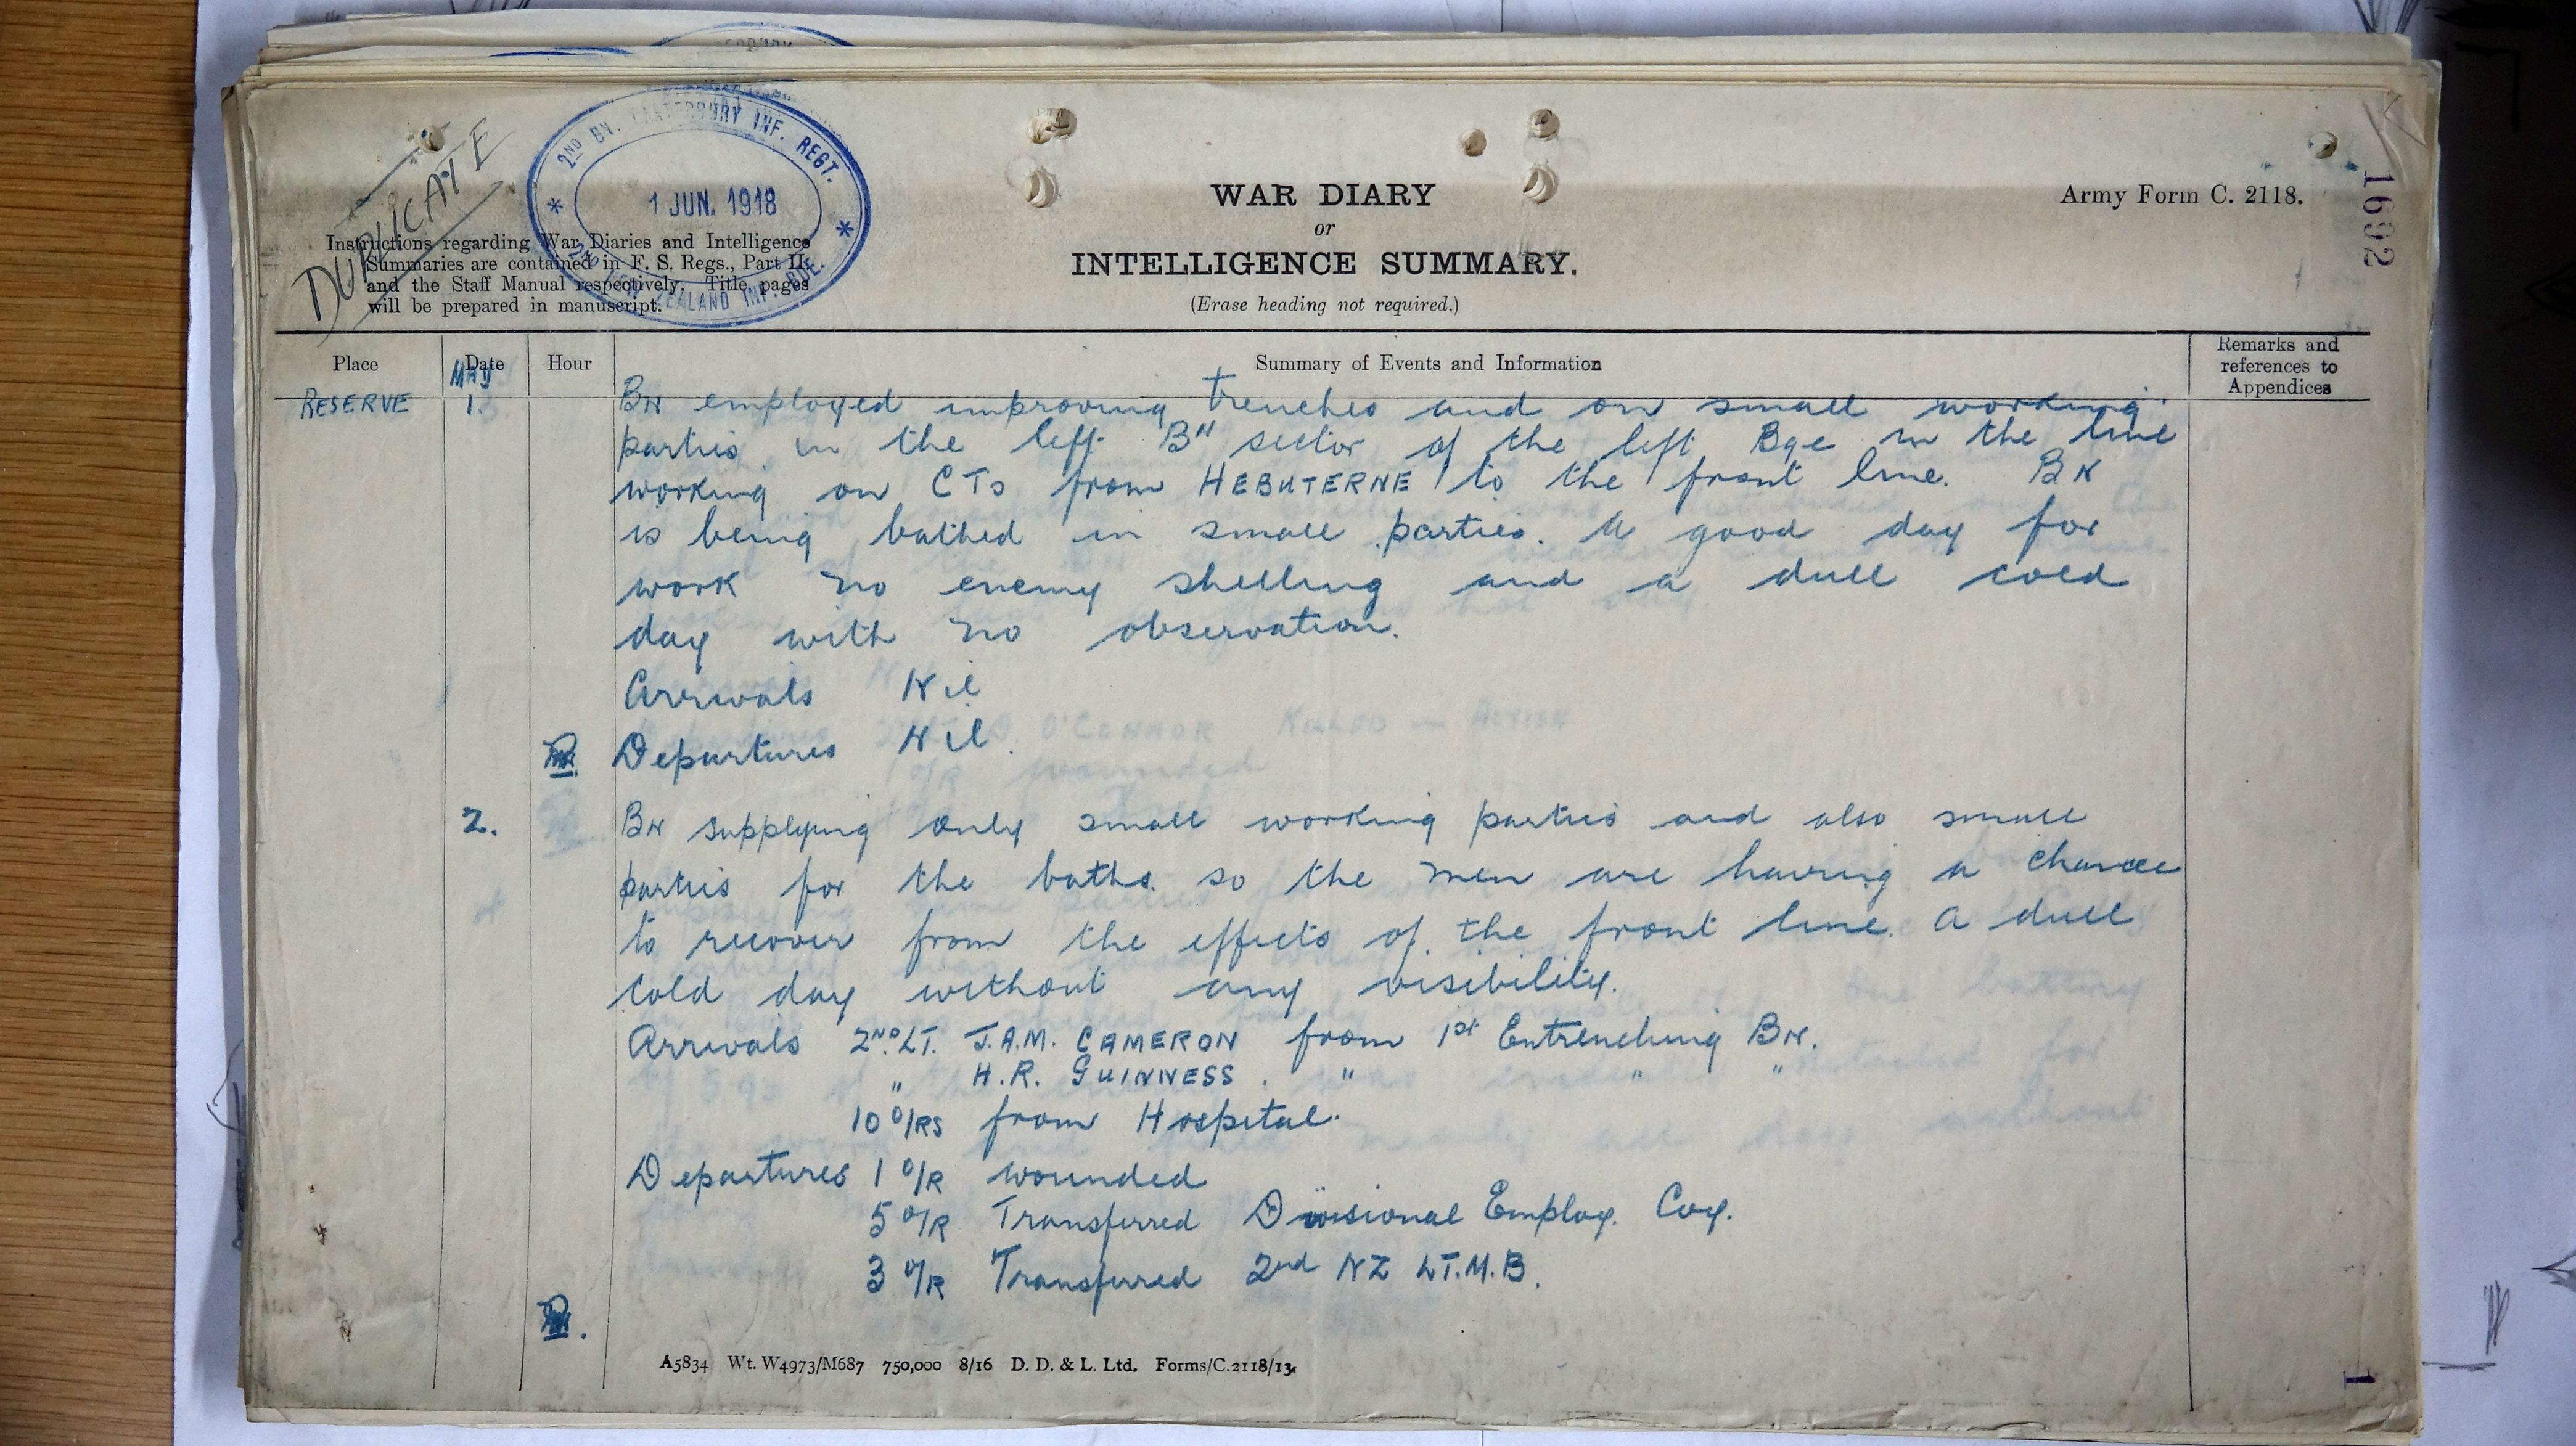 DUPLICATE
2ND BN. CANTERBURY INF. REGT.
1 JUN. 1918
2ND NEW ZEALAND INF. BDE.
Instructions regarding War Diaries and Intelligence
Summaries are contained in F. S. Regs., Part II.
and the Staff Manual respectively. Title pages
will be prepared in manuscript.
WAR DIARY
or
INTELLIGENCE SUMMARY.
(Erase heading not required.)
Army Form C. 2118.
1692
Place Date Hour Summary of Events and Information Remarks and references to Appendices
MAY
RESERVE 1. BN employed improving trenches and on small working
parties in the left Bn sector of the left Bge in the line
working on CTs from HEBUTERNE to the front line. BN
is being bathed in small parties. A good day for
work no enemy shelling and a dull cold
day with no observation.
Arrivals Nil
Departures Nil.
2. BN supplying only small working parties and also small
parties for the baths so the men are having a chance
to recover from the effects of the front line. A dull
cold day without any visibility.
Arrivals 2ND LT. J.A.M. CAMERON from 1st Entrenching BN.
" H.R. GUINNESS. " " "
10 O/RS from Hospital.
Departures 1 O/R wounded
5 O/R Transferred Divisional Employ. Coy.
3 O/R Transferred 2nd NZ LT.M.B.
A5834 Wt. W4973/M687 750,000 8/16 D. D. & L. Ltd. Forms/C.2118/13.
1